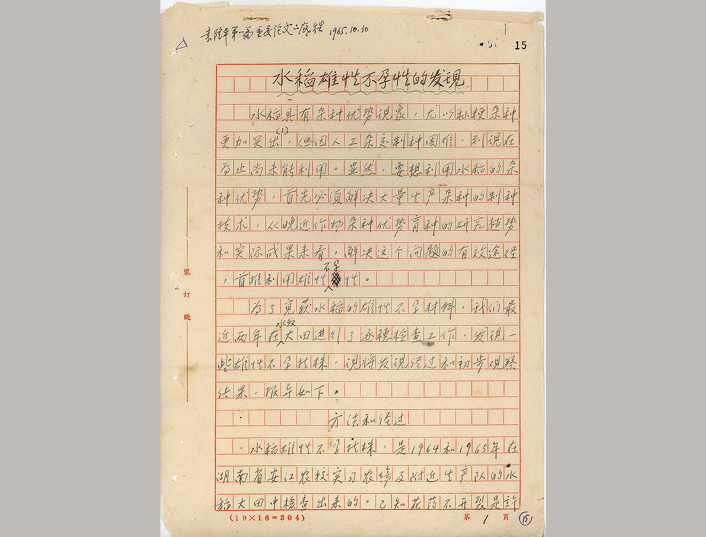 袁隆平第一篇重要论文 1965.10.30
15
水稻雄性不孕性的发现
水稻具有杂种优势现象，尤以籼粳杂种
更加突出(1)，但因人工杂交制种困难，到现在
为止尚未能利用。显然，要想利用水稻的杂
种优势，首先必须解决大量生产杂种的制种
技术，从晚近作物杂种优势育种的研究趋势
和实际成果来看，解决这个问题的有效途径
，首推利用雄性不孕性。
为了寻获水稻的雄性不孕材料，我们最
近两年在水稻大田进行了逐穗检查工作，发现一
些雄性不孕植株，现将发现经过和初步观察
结果，报导如下。
方法和经过
水稻雄性不孕植株，是1964和1965年在
湖南省安江农校实习农场及附近生产队的水
稻大田中检查出来的。已知花药不开裂是许
装订线
(19×16=304)
第 1 页
15